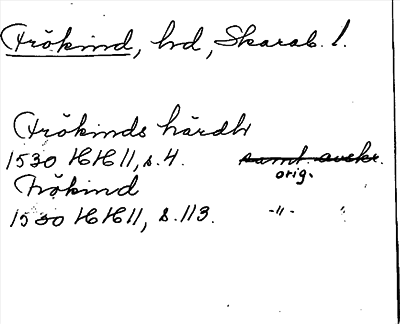 Frökind, hd, Skarab. l.
Frökinds hårdh
1530 HH 11, s. 4. samt. avskr.
orig.
Frökind
1530 HH 11, s. 113. -"- "